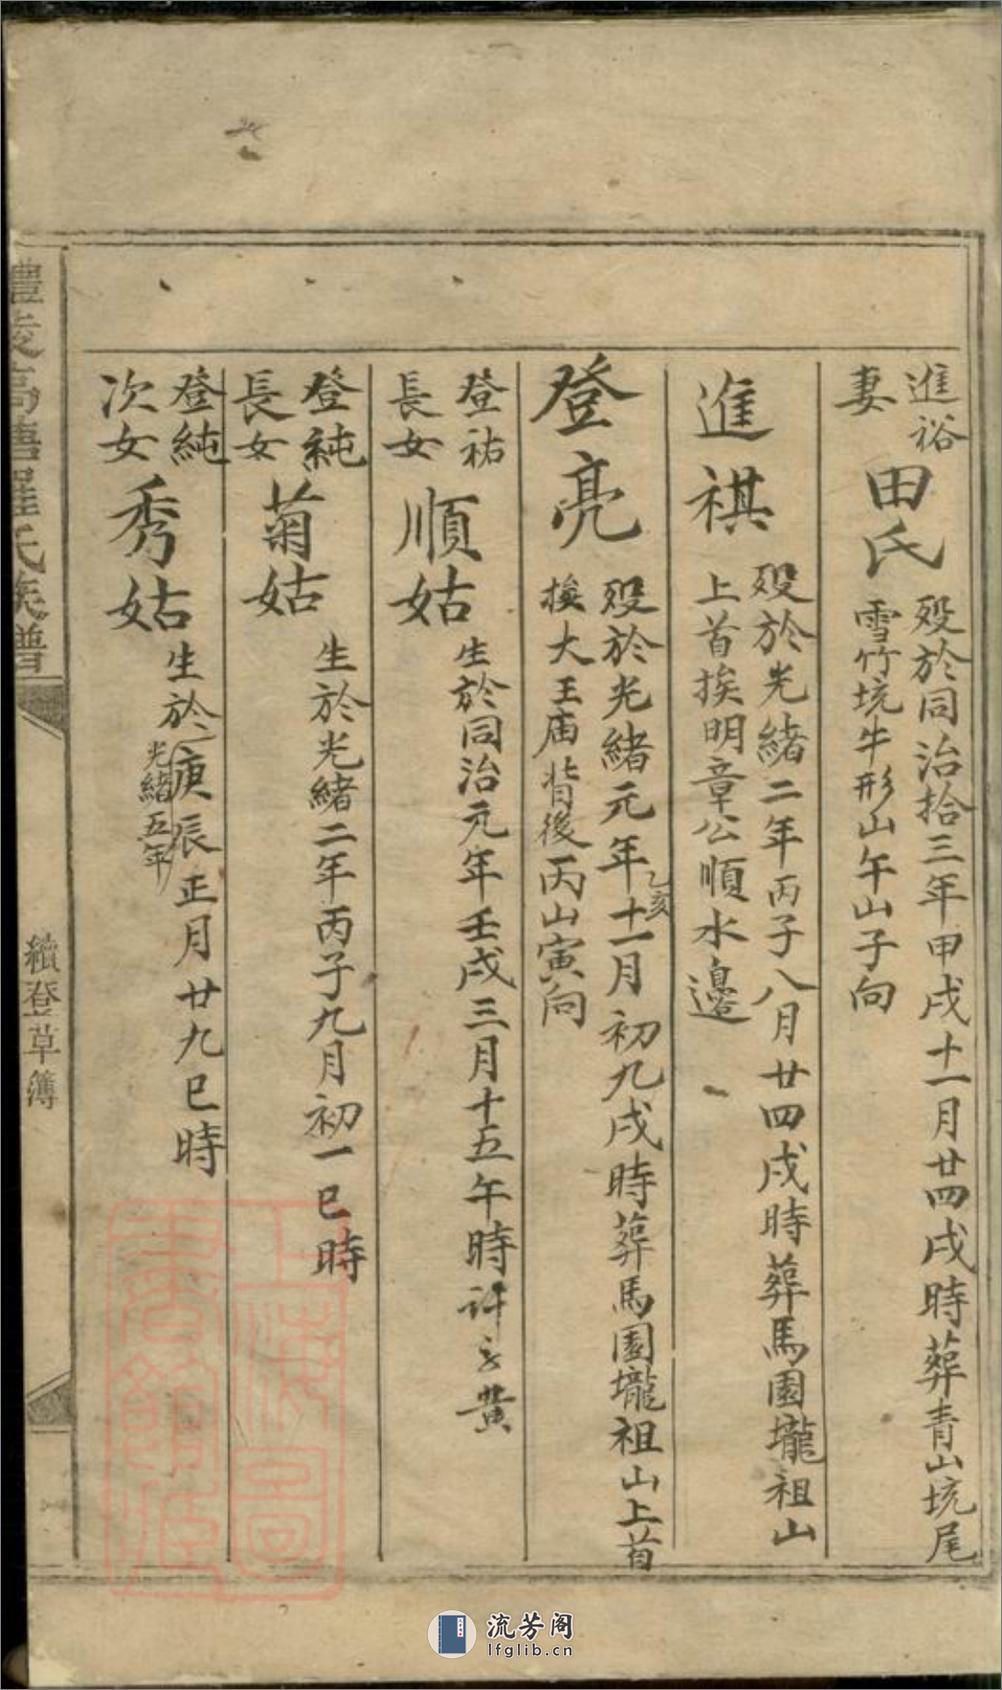 進裕
妻
田氏
殁於同治拾三年甲戌十一月廿四戌時葬青山坑尾
雪竹坑牛形山午山子向
進祺
殁於光緒二年丙子八月廿四戌時葬馬園壠祖山
上首挨明章公順水邊
登亮
殁於光緒元年乙亥十一月初九戌時葬馬園壠祖山上首
挨大王庙背後丙山寅向
登祐
長女
順姑
生於同治元年壬戌三月十五午時許黄
登純
長女
菊姑
生於光緒二年丙子九月初一巳時
登純
次女
秀姑
生於庚辰正月廿九巳時
光緒五年
醴陵高塘羅氏族譜
續登草簿
上海圖
書館藏
流芳阁
lfglib.cn